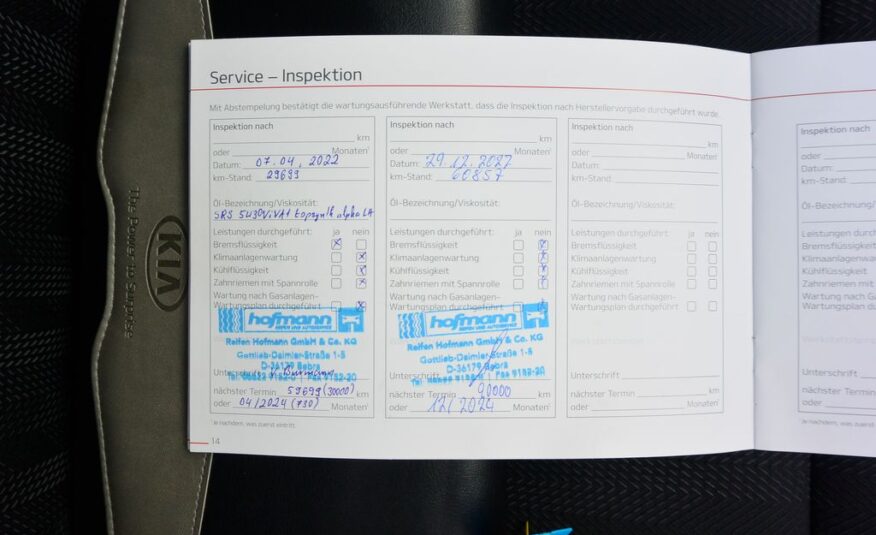 Service – Inspektion
Mit Abstempelung bestätigt die wartungsausführende Werkstatt, dass die Inspektion nach Herstellervorgabe durchgeführt wurde.
Inspektion nach
km
oder Monaten¹
Datum: 07.04.2022
km-Stand: 29699
Öl-Bezeichnung/Viskosität:
SRS 5W30 ViVA1 topsynth alpha LA
Leistungen durchgeführt: ja nein
Bremsflüssigkeit
Klimaanlagenwartung
Kühlflüssigkeit
Zahnriemen mit Spannrolle
Wartung nach Gasanlagen-
Wartungsplan durchgeführt
hofmann
REIFEN UND AUTOSERVICE
Reifen Hofmann GmbH & Co. KG
Gottlieb-Daimler-Straße 1-5
D-36179 Bebra
Unterschrift
nächster Termin 59699 (30000) km
oder 04/2024 (730) Monaten¹
Inspektion nach
km
oder Monaten¹
Datum: 29.12.
km-Stand: 60857
Öl-Bezeichnung/Viskosität:
Leistungen durchgeführt: ja nein
Bremsflüssigkeit
Klimaanlagenwartung
Kühlflüssigkeit
Zahnriemen mit Spannrolle
Wartung nach Gasanlagen-
Wartungsplan durchgeführt
hofmann
REIFEN UND AUTOSERVICE
Reifen Hofmann GmbH & Co. KG
Gottlieb-Daimler-Straße 1-5
D-36179 Bebra
Unterschrift
nächster Termin 90000 km
oder 12/2024 Monaten¹
Inspektion nach
km
oder Monaten¹
Datum:
km-Stand:
Öl-Bezeichnung/Viskosität:
Leistungen durchgeführt: ja nein
Bremsflüssigkeit
Klimaanlagenwartung
Kühlflüssigkeit
Zahnriemen mit Spannrolle
Wartung nach Gasanlagen-
Wartungsplan durchgeführt
Unterschrift
nächster Termin km
oder Monaten¹
¹Je nachdem, was zuerst eintritt.
14
Inspektion nach
oder
Datum:
km-Stand:
Öl-Bezeichnung/Vis
Leistungen durch
Bremsflüssigkeit
Klimaanlagenwart
Kühlflüssigkeit
Zahnriemen mit S
Wartung nach Ga
Wartungsplan du
Unterschrift
nächster Termi
oder
¹Je nachdem, was zue
KIA
The Power to Surprise